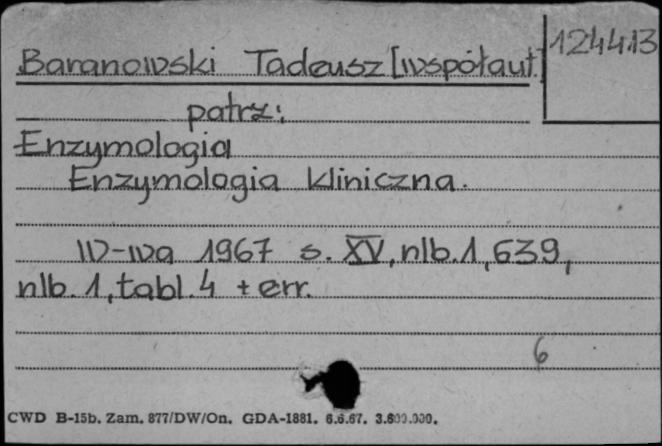 124413
Baranowski Tadeusz [współaut.]
patrz:
Enzymologia
Enzymologia kliniczna.
W-wa 1967 s. XV, nlb. 1, 639,
nlb. 1, tabl. 4 + err.
6
CWD B-15b. Zam. 877/DW/On. GDA-1881. 6.6.67. 3.600.000.